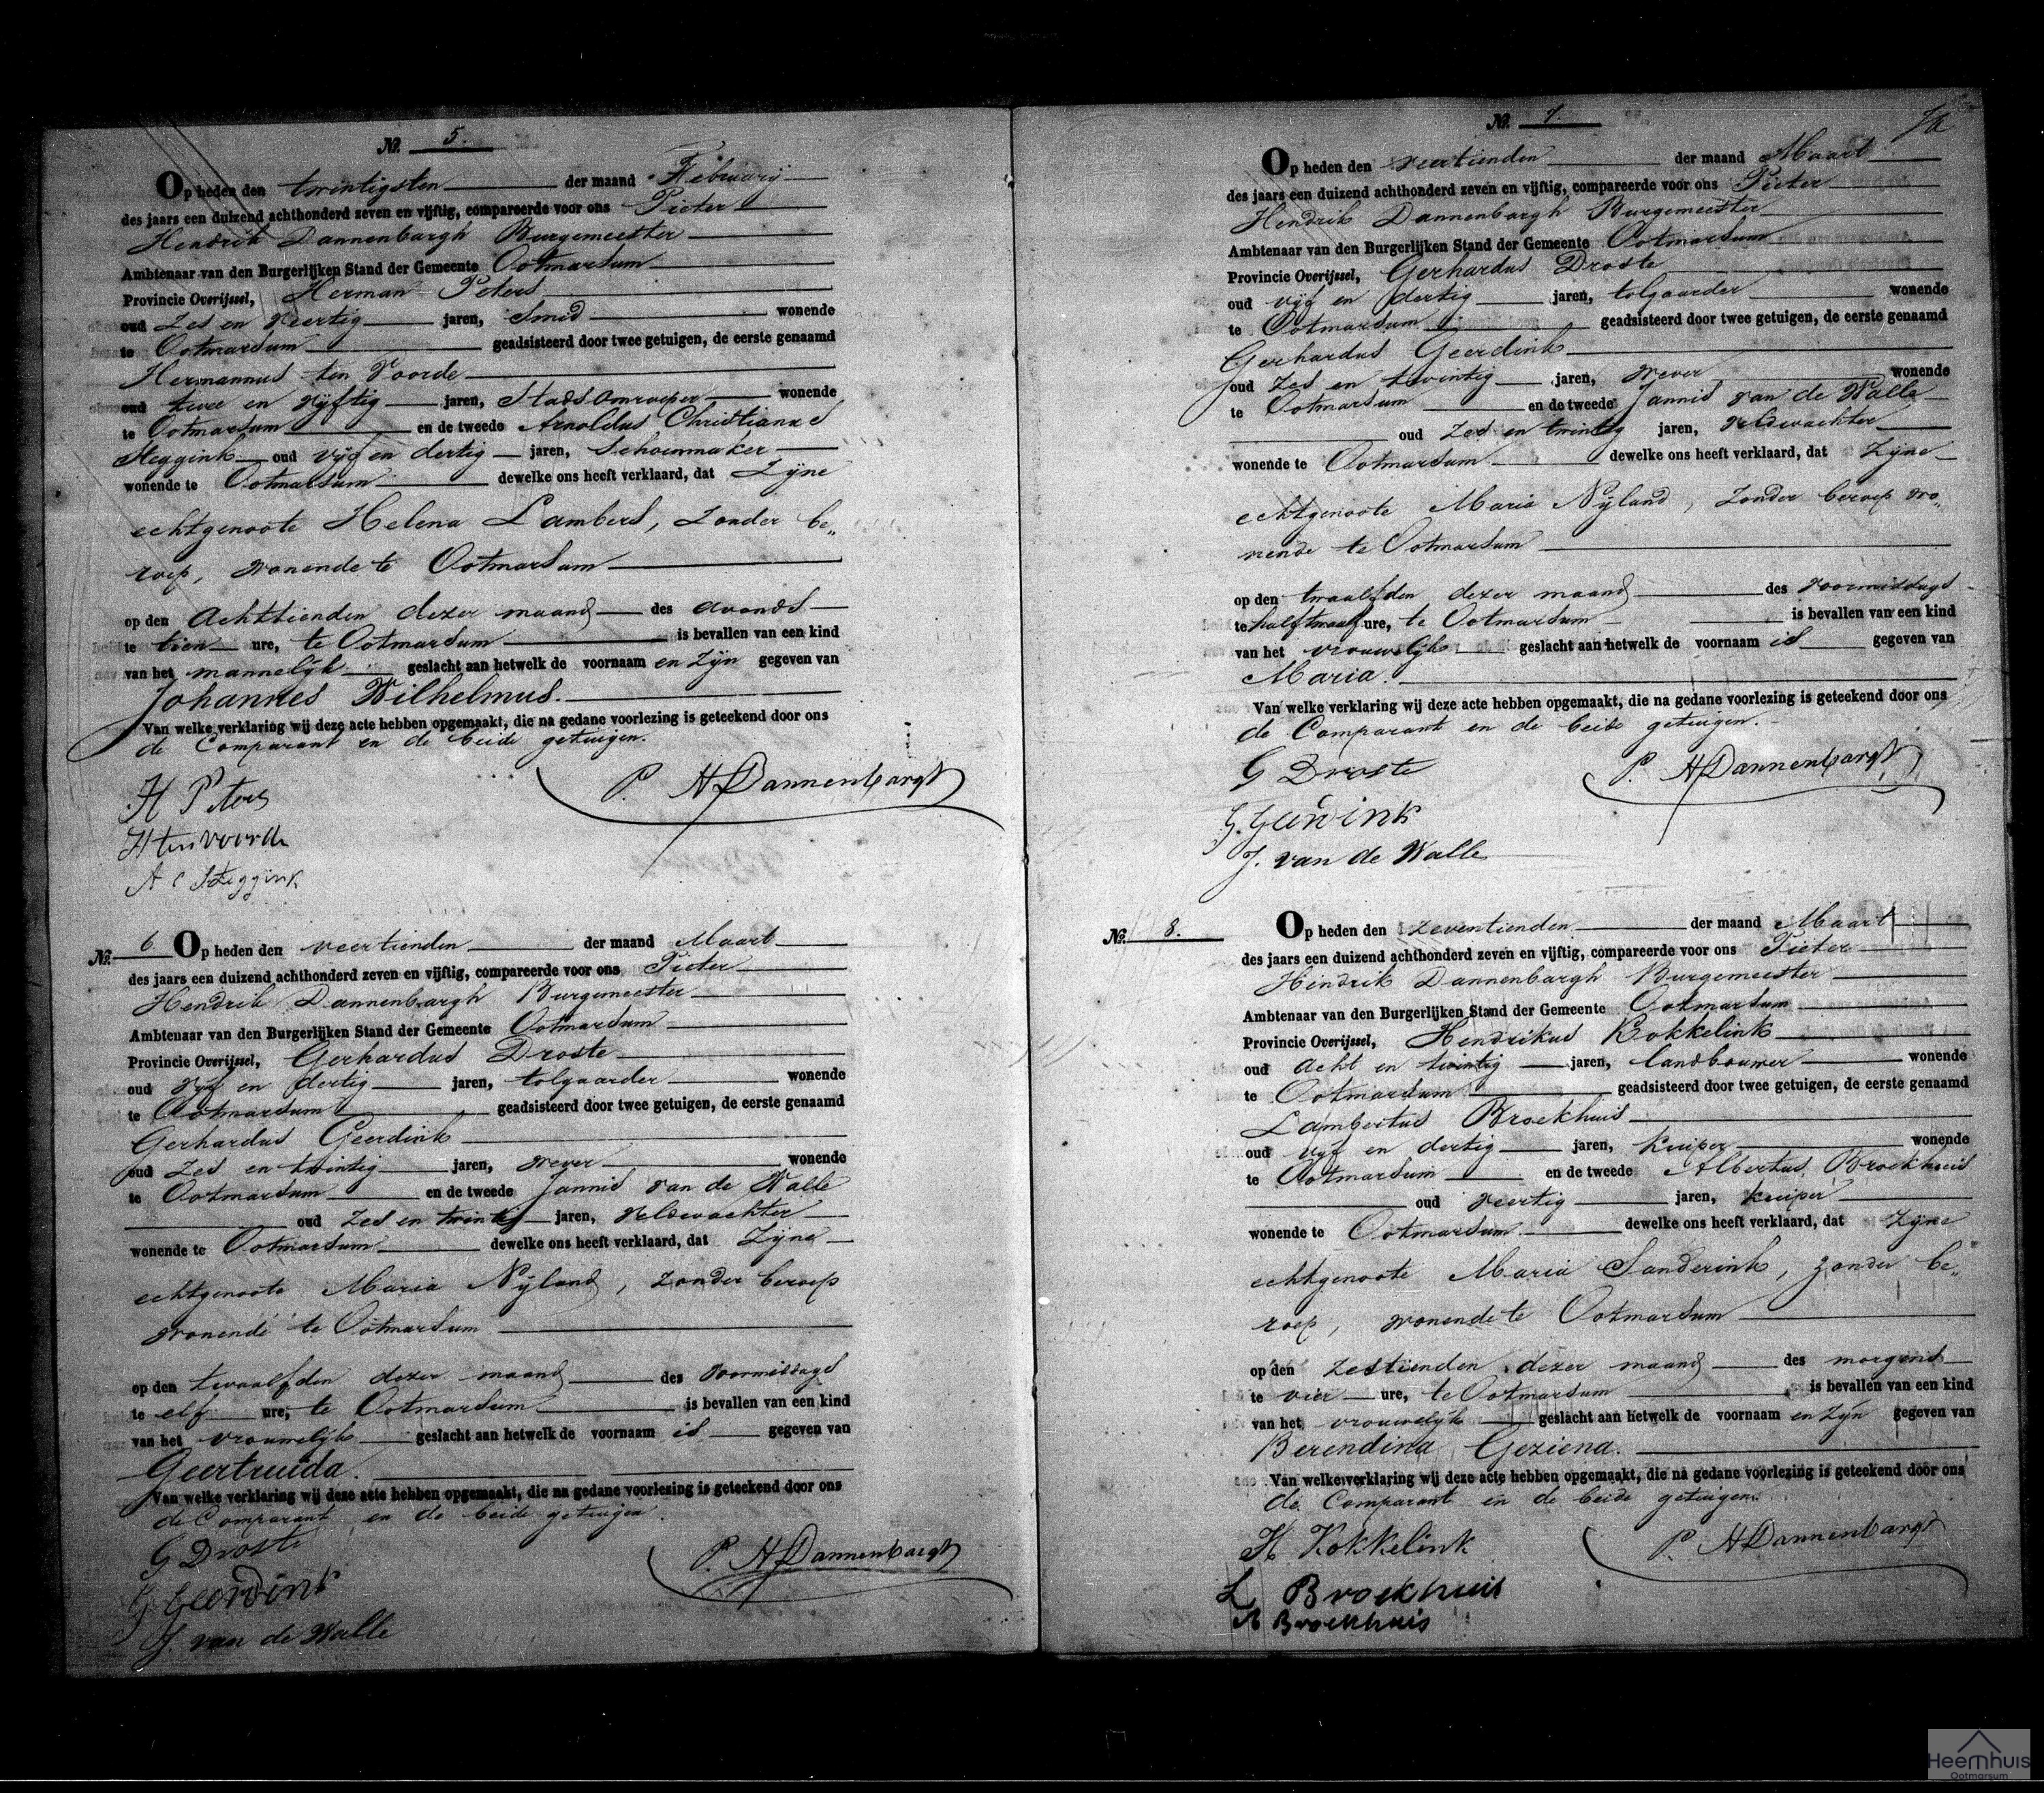 No. 5.
Op heden den twintigsten der maand Februarij
des jaars een duizend achthonderd zeven en vijftig, compareerde voor ons Pieter
Hendrik Dannenbargh Burgemeester
Ambtenaar van den Burgerlijken Stand der Gemeente Ootmarsum
Provincie Overijssel, Herman Peters
oud Zes en veertig jaren, Smid wonende
te Ootmarsum geadsisteerd door twee getuigen, de eerste genaamd
Hermannus ten Voorde
oud twee en vijftig jaren, Stads omroeper wonende
te Ootmarsum en de tweede Arnoldus Christianus
Steggink oud vijf en dertig jaren, Schoenmaker
wonende te Ootmarsum dewelke ons heeft verklaard, dat Zijne
echtgenoote Helena Lambers, Zonder be„
roep, wonende te Ootmarsum
op den Achttienden dezer maand des avonds
te tien ure, te Ootmarsum is bevallen van een kind
van het mannelijk geslacht aan hetwelk de voornaam en Zijn gegeven van
Johannes Wilhelmus.
Van welke verklaring wij deze acte hebben opgemaakt, die na gedane voorlezing is geteekend door ons
de Comparant en de beide getuigen.
H Peters
P. H Dannenbargh
H ten voorde
A C Steggink
No. 6
Op heden den veertienden der maand Maart
des jaars een duizend achthonderd zeven en vijftig, compareerde voor ons Pieter
Hendrik Dannenbargh Burgemeester
Ambtenaar van den Burgerlijken Stand der Gemeente Ootmarsum
Provincie Overijssel, Gerhardus Droste
oud vijf en dertig jaren, tolgaarder wonende
te Ootmarsum geadsisteerd door twee getuigen, de eerste genaamd
Gerhardus Geerdink
oud Zes en twintig jaren, wever wonende
te Ootmarsum en de tweede Jannis van de Walle
oud Zes en twintig jaren, veldwachter
wonende te Ootmarsum dewelke ons heeft verklaard, dat Zijne
echtgenoote Maria Nijland, Zonder beroep
wonende te Ootmarsum
op den twaalfden dezer maand des voormiddags
te elf ure, te Ootmarsum is bevallen van een kind
van het vrouwelijk geslacht aan hetwelk de voornaam is gegeven van
Geertruida.
Van welke verklaring wij deze acte hebben opgemaakt, die na gedane voorlezing is geteekend door ons
de Comparant en de beide getuigen.
G Droste
P. H Dannenbargh
G Geerdink
J. van de Walle
No. 7.
Op heden den veertienden der maand Maart
des jaars een duizend achthonderd zeven en vijftig, compareerde voor ons Pieter
Hendrik Dannenbargh Burgemeester
Ambtenaar van den Burgerlijken Stand der Gemeente Ootmarsum
Provincie Overijssel, Gerhardus Droste
oud vijf en dertig jaren, tolgaarder wonende
te Ootmarsum geadsisteerd door twee getuigen, de eerste genaamd
Gerhardus Geerdink
oud Zes en twintig jaren, wever wonende
te Ootmarsum en de tweede Jannis van de Walle
oud Zes en twintig jaren, veldwachter
wonende te Ootmarsum dewelke ons heeft verklaard, dat Zijne
echtgenoote Maria Nijland, Zonder beroep wo„
nende te Ootmarsum
op den twaalfden dezer maand des voormiddags
te half twaalf ure, te Ootmarsum is bevallen van een kind
van het vrouwelijk geslacht aan hetwelk de voornaam is gegeven van
Maria.
Van welke verklaring wij deze acte hebben opgemaakt, die na gedane voorlezing is geteekend door ons
de Comparant en de beide getuigen.
G Droste
P. H Dannenbargh
G. Geerdink
J. van de Walle
No. 8.
Op heden den zeventienden der maand Maart
des jaars een duizend achthonderd zeven en vijftig, compareerde voor ons Pieter
Hendrik Dannenbargh Burgemeester
Ambtenaar van den Burgerlijken Stand der Gemeente Ootmarsum
Provincie Overijssel, Hendrikus Kokkelink
oud Acht en twintig jaren, landbouwer wonende
te Ootmarsum geadsisteerd door twee getuigen, de eerste genaamd
Lambertus Broekhuis
oud vijf en dertig jaren, Kuiper wonende
te Ootmarsum en de tweede Albertus Broekhuis
oud veertig jaren, kuiper
wonende te Ootmarsum dewelke ons heeft verklaard, dat Zijne
echtgenoote Maria Sanderink, Zonder be„
roep, wonende te Ootmarsum
op den Zestienden dezer maand des morgens
te vier ure, te Ootmarsum is bevallen van een kind
van het vrouwelijk geslacht aan hetwelk de voornaam en Zijn gegeven van
Berendina Geziena.
Van welke verklaring wij deze acte hebben opgemaakt, die na gedane voorlezing is geteekend door ons
de Comparant en de beide getuigen.
H Kokkelink
P. H Dannenbargh
L Broekhuis
A Broekhuis
Heemhuis
Ootmarsum